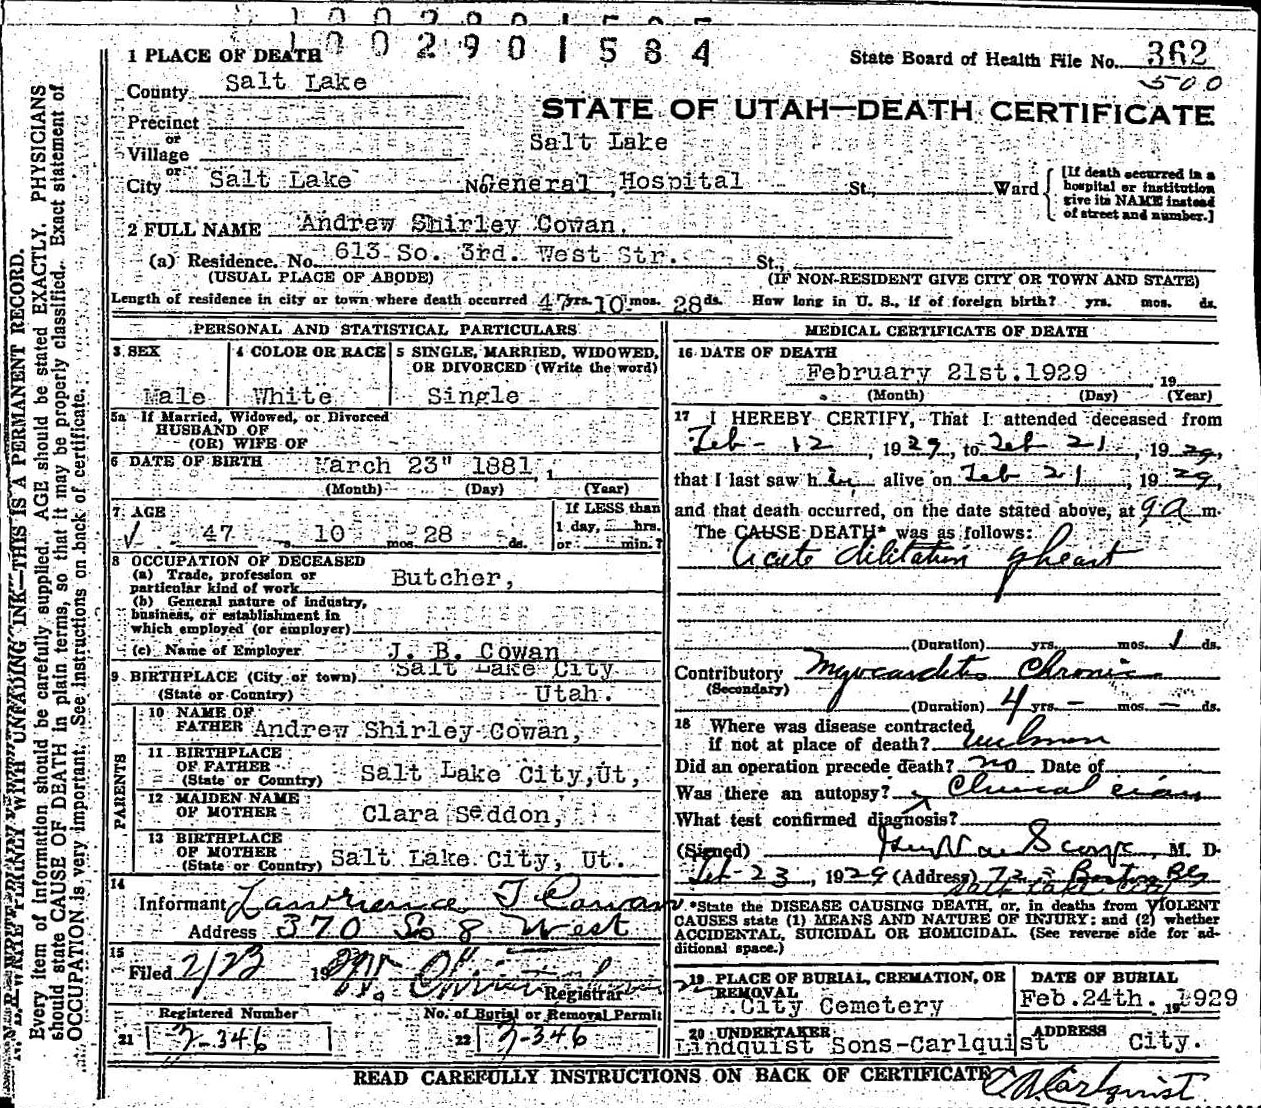 1002901584
1 PLACE OF DEATH
State Board of Health File No. 362
500
County Salt Lake
STATE OF UTAH—DEATH CERTIFICATE
Precinct
or
Village
Salt Lake
or
City Salt Lake No. General Hospital St., Ward
[If death occurred in a hospital or institution give its NAME instead of street and number.]
2 FULL NAME Andrew Shirley Cowan.
(a) Residence. No. 613 So. 3rd. West Str. St.,
(USUAL PLACE OF ABODE) (IF NON-RESIDENT GIVE CITY OR TOWN AND STATE)
Length of residence in city or town where death occurred 47 yrs. 10 mos. 28 ds. How long in U. S., if of foreign birth? yrs. mos. ds.
PERSONAL AND STATISTICAL PARTICULARS
3 SEX
Male
4 COLOR OR RACE
White
5 SINGLE, MARRIED, WIDOWED,
OR DIVORCED (Write the word)
Single
5a If Married, Widowed, or Divorced
HUSBAND OF
(OR) WIFE OF
6 DATE OF BIRTH March 23" 1881, 1
(Month) (Day) (Year)
7 AGE
47 10 mos 28 ds.
If LESS than
1 day, hrs.
or min.?
8 OCCUPATION OF DECEASED
(a) Trade, profession or
particular kind of work Butcher,
(b) General nature of industry,
business, or establishment in
which employed (or employer)
(c) Name of Employer J. B. Cowan
9 BIRTHPLACE (City or town) Salt Lake City
(State or Country) Utah.
PARENTS
10 NAME OF
FATHER Andrew Shirley Cowan,
11 BIRTHPLACE
OF FATHER
(State or Country) Salt Lake City, Ut,
12 MAIDEN NAME
OF MOTHER Clara Seddon,
13 BIRTHPLACE
OF MOTHER
(State or Country) Salt Lake City, Ut.
14
Informant Lawrence T Cowan
Address 370 So 8 West
15
Filed 2/23 19
Registrar
Registered Number
21 2-346
No. of Burial or Removal Permit
22 2-346
MEDICAL CERTIFICATE OF DEATH
16 DATE OF DEATH
February 21st.1929 19
(Month) (Day) (Year)
17 I HEREBY CERTIFY, That I attended deceased from
Feb-12, 1929, to Feb 21, 1929,
that I last saw him alive on Feb 21, 1929,
and that death occurred, on the date stated above, at 9 a m.
The CAUSE DEATH* was as follows:
Acute dilitation of heart
(Duration) yrs. mos. 1 ds.
Contributory Myocarditis Chronic
(Secondary)
(Duration) 4 yrs. - mos. - ds.
18 Where was disease contracted
if not at place of death? unknown
Did an operation precede death? no Date of
Was there an autopsy? Clinical exam
What test confirmed diagnosis?
(Signed) M. D.
Feb-23, 1929 (Address) Boston Bg
Salt Lake City
*State the DISEASE CAUSING DEATH, or, in deaths from VIOLENT
CAUSES state (1) MEANS AND NATURE OF INJURY; and (2) whether
ACCIDENTAL, SUICIDAL OR HOMICIDAL. (See reverse side for additional space.)
19 PLACE OF BURIAL, CREMATION, OR
REMOVAL
City Cemetery
DATE OF BURIAL
Feb.24th. 19 1929
20 UNDERTAKER
Lindquist Sons-Carlquist
ADDRESS
City.
READ CAREFULLY INSTRUCTIONS ON BACK OF CERTIFICATE
C A Carlquist
N. B.—WRITE PLAINLY WITH UNFADING INK—THIS IS A PERMANENT RECORD.
Every item of information should be carefully supplied. AGE should be stated EXACTLY. PHYSICIANS
should state CAUSE OF DEATH in plain terms, so that it may be properly classified. Exact statement of
OCCUPATION is very important. See instructions on back of certificate.